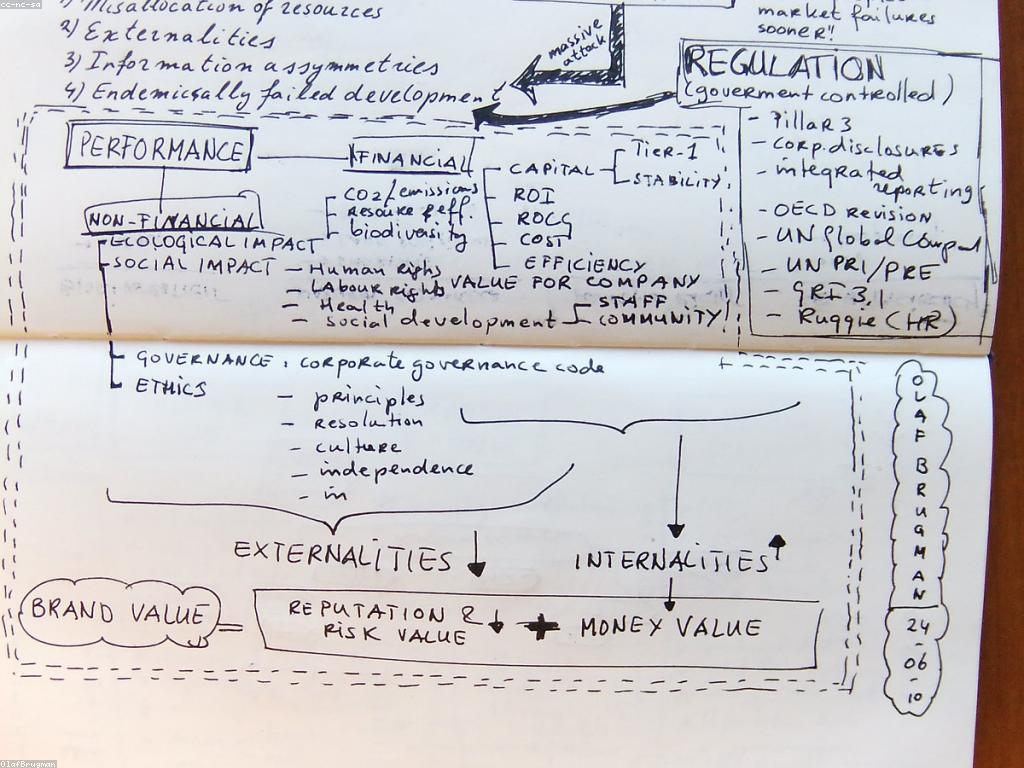 cc-nc-sa
1) Misallocation of resources
2) Externalities
3) Information assymmetries
4) Endemically failed development
massive
attack
market failures
sooner!!
REGULATION
(goverment controlled)
- Pillar 3
- corp. disclosures
- integrated
reporting
- OECD Revision
- UN Global Compact
- UN PRI/PRE
- GRI 3.1
- Ruggie (HR)
PERFORMANCE
FINANCIAL
CAPITAL
Tier-1
STABILITY
ROI
COST
EFFICIENCY
VALUE FOR COMPANY
NON-FINANCIAL
CO2/emissions
resource eff.
biodiversity
ECOLOGICAL IMPACT
SOCIAL IMPACT
- Human rights
- Labour rights
- Health
- social development
STAFF
COMMUNITY
GOVERNANCE : corporate governance code
ETHICS
- principles
- resolution
- culture
- independence
- in
EXTERNALITIES
INTERNALITIES
BRAND VALUE
=
REPUTATION &
RISK VALUE
+
MONEY VALUE
OLAF BRUGMAN
24
-
06
-
10
OlafBrugman